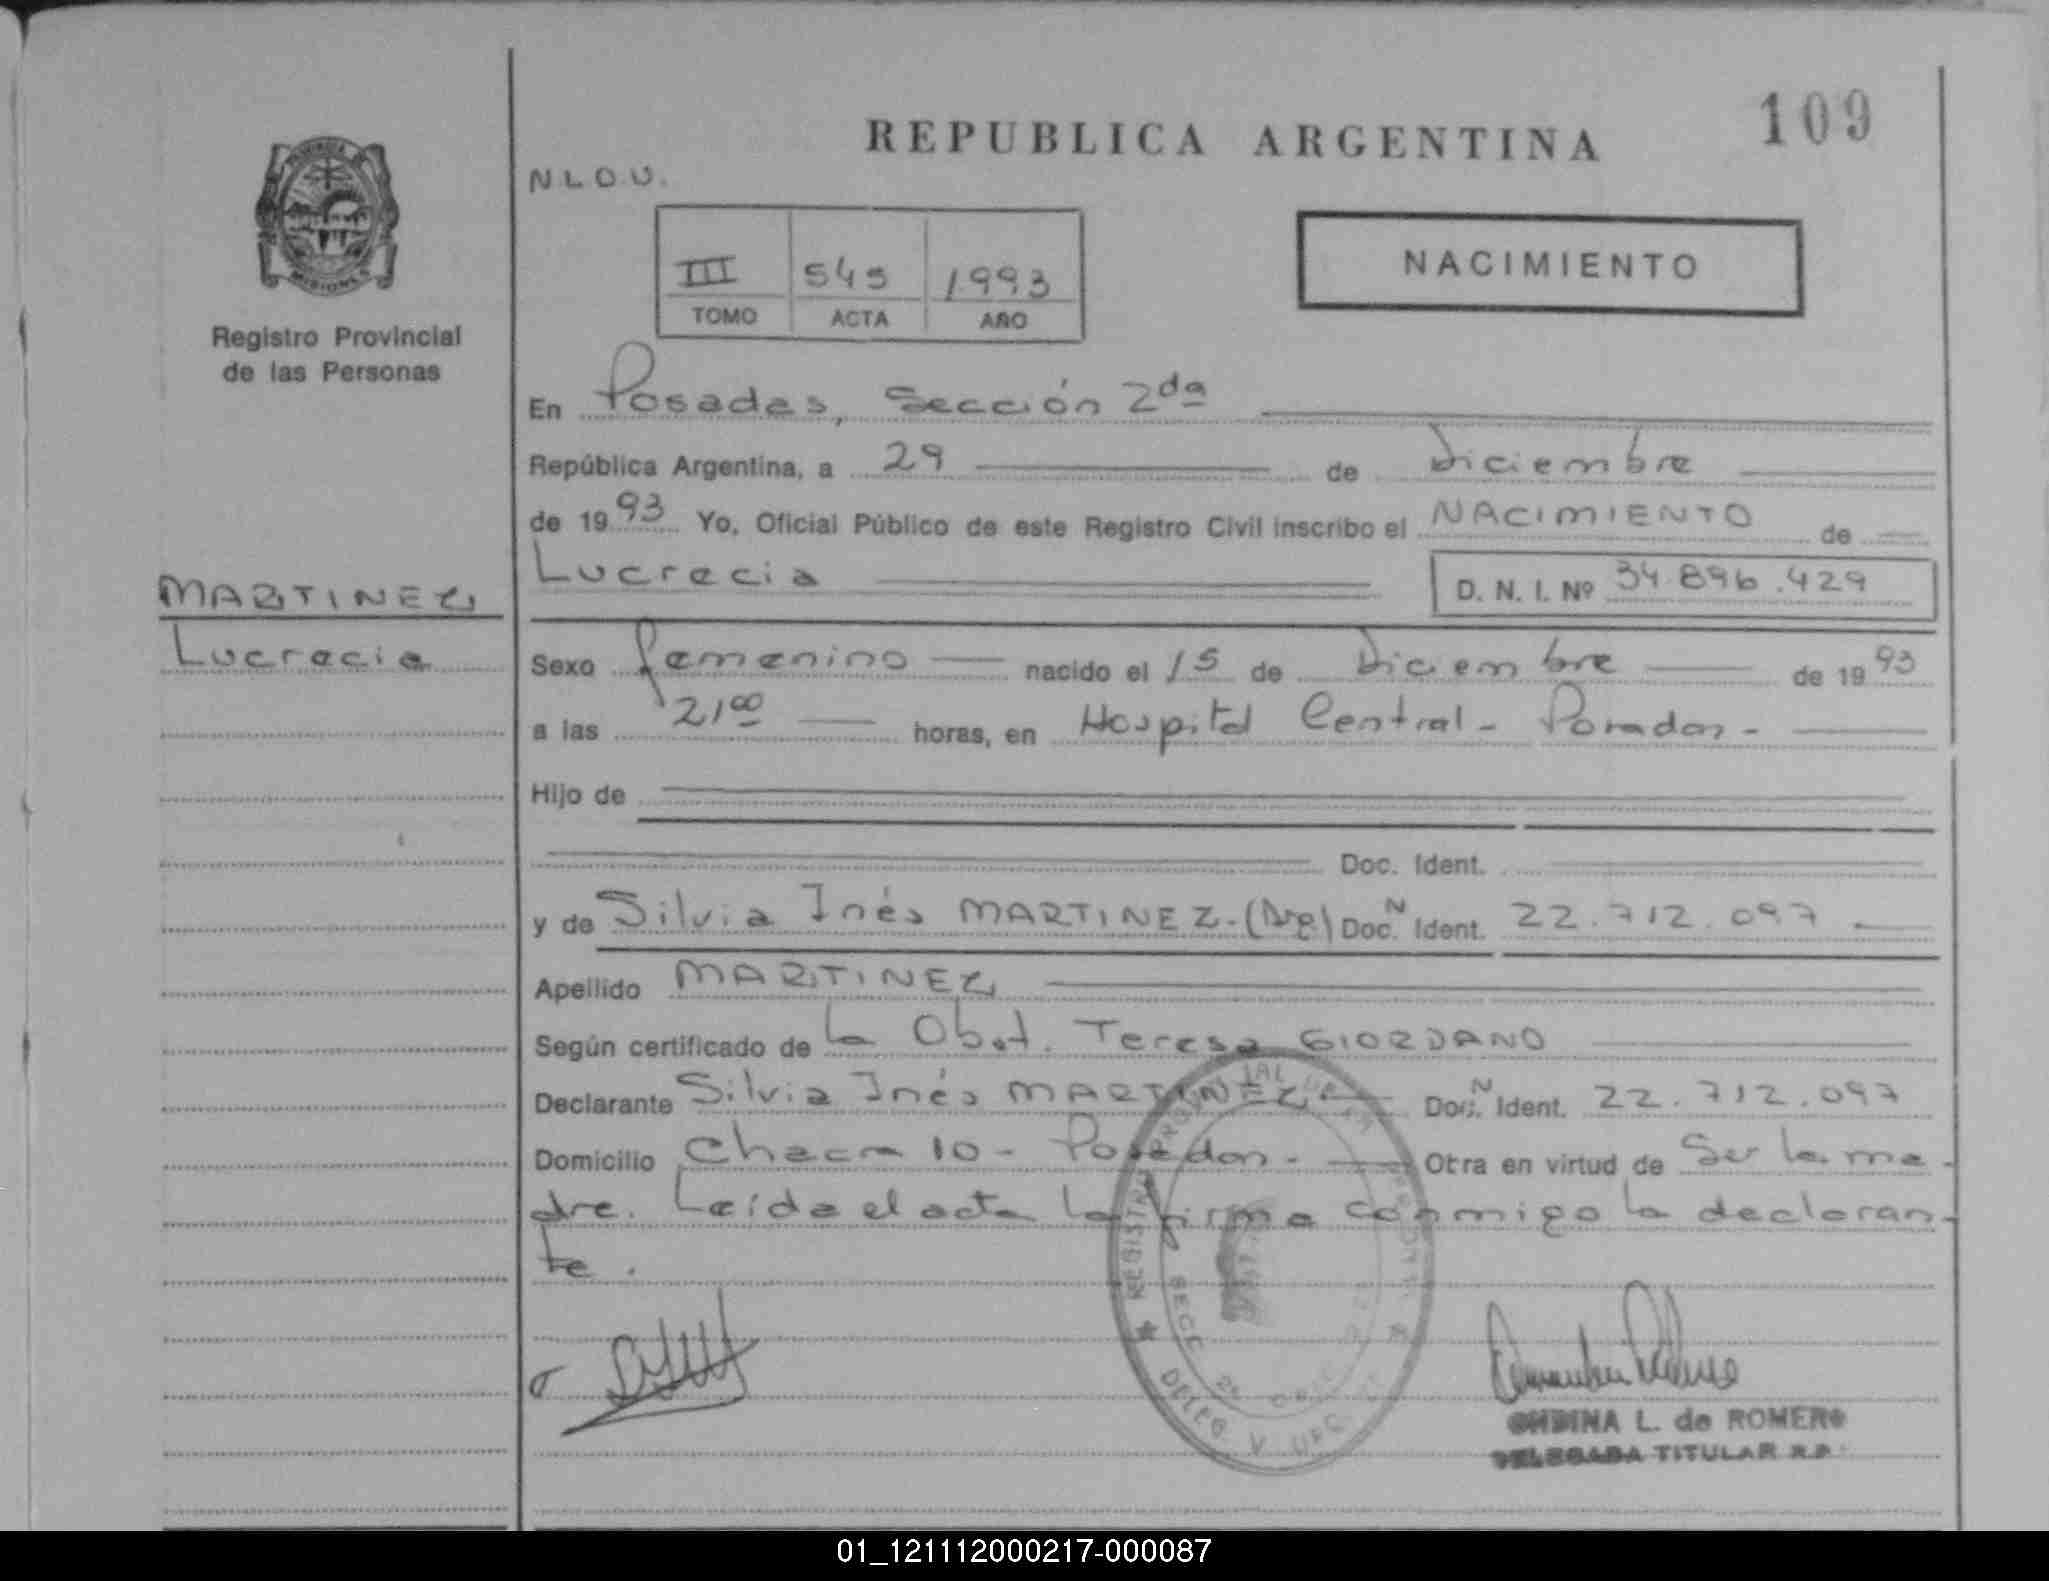 109
REPUBLICA ARGENTINA
N.L.O.U.
PROVINCIA DE
MISIONES
III 545 1993
TOMO ACTA AÑO
NACIMIENTO
Registro Provincial
de las Personas
En Posadas, Sección 2da
República Argentina, a 29 de Diciembre
de 1993 Yo, Oficial Público de este Registro Civil inscribo el NACIMIENTO de
Lucrecia D. N. I. Nº 34.896.429
MARTINEZ
Lucrecia
Sexo femenino nacido el 15 de Diciembre de 1993
a las 21 00 horas, en Hospital Central - Posadas -
Hijo de
Doc. Ident.
y de Silvia Inés MARTINEZ - (Arg) Doc. N Ident. 22.712.097
Apellido MARTINEZ
Según certificado de la Obst. Teresa GIORDANO
Declarante Silvia Inés MARTINEZ Doc. N Ident. 22.712.097
Domicilio Chacra 10 - Posadas - Otra en virtud de Ser la ma-
dre. Leída el acta la firma conmigo la declaran-
te.
ONDINA L. de ROMERO
DELEGADA TITULAR R.P.
01_121112000217-000087